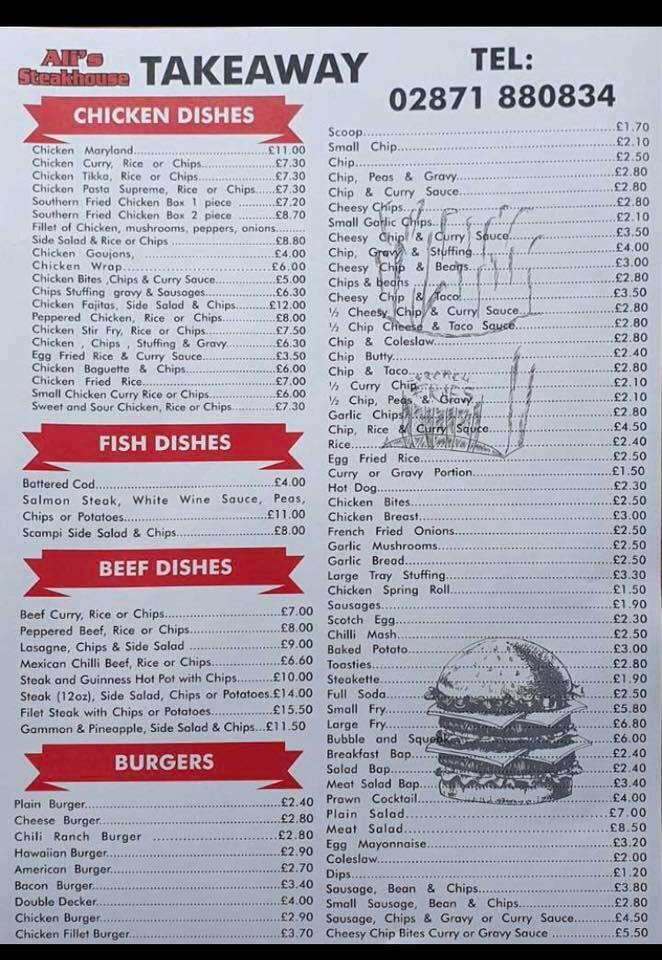 Ali's
Steakhouse
TAKEAWAY
TEL:
02871 880834
CHICKEN DISHES
Chicken Maryland...£11.00
Chicken Curry, Rice or Chips...£7.30
Chicken Tikka, Rice or Chips...£7.30
Chicken Pasta Supreme, Rice or Chips...£7.30
Southern Fried Chicken Box 1 piece ...£7.20
Southern Fried Chicken Box 2 piece ...£8.70
Fillet of Chicken, mushrooms, peppers, onions...
Side Salad & Rice or Chips ...£8.80
Chicken Goujons, ...£4.00
Chicken Wrap...£6.00
Chicken Bites ,Chips & Curry Sauce...£5.00
Chips Stuffing gravy & Sausages...£6.30
Chicken Fajitas, Side Salad & Chips...£12.00
Peppered Chicken, Rice or Chips...£8.00
Chicken Stir Fry, Rice or Chips...£7.50
Chicken , Chips , Stuffing & Gravy...£6.30
Egg Fried Rice & Curry Sauce...£3.50
Chicken Baguette & Chips...£6.00
Chicken Fried Rice...£7.00
Small Chicken Curry Rice or Chips...£6.00
Sweet and Sour Chicken, Rice or Chips...£7.30
FISH DISHES
Battered Cod...£4.00
Salmon Steak, White Wine Sauce, Peas,
Chips or Potatoes...£11.00
Scampi Side Salad & Chips...£8.00
BEEF DISHES
Beef Curry, Rice or Chips...£7.00
Peppered Beef, Rice or Chips...£8.00
Lasagne, Chips & Side Salad ...£9.00
Mexican Chilli Beef, Rice or Chips...£6.60
Steak and Guinness Hot Pot with Chips...£10.00
Steak (12oz), Side Salad, Chips or Potatoes.£14.00
Filet Steak with Chips or Potatoes...£15.50
Gammon & Pineapple, Side Salad & Chips...£11.50
BURGERS
Plain Burger...£2.40
Cheese Burger...£2.80
Chili Ranch Burger ...£2.80
Hawaiian Burger...£2.90
American Burger...£2.70
Bacon Burger...£3.40
Double Decker...£4.00
Chicken Burger...£2.90
Chicken Fillet Burger...£3.70
Scoop...£1.70
Small Chip...£2.10
Chip...£2.50
Chip, Peas & Gravy...£2.80
Chip & Curry Sauce...£2.80
Cheesy Chips...£2.80
Small Garlic Chips...£2.10
Cheesy Chip & Curry Sauce...£3.50
Chip, Gravy & Stuffing...£4.00
Cheesy Chip & Beans...£3.00
Chips & beans...£2.80
Cheesy Chip & Taco...£3.50
½ Cheesy Chip & Curry Sauce...£2.80
½ Chip Cheese & Taco Sauce...£2.80
Chip & Coleslaw...£2.80
Chip Butty...£2.40
Chip & Taco...£2.80
½ Curry Chip...£2.10
½ Chip, Peas & Gravy...£2.10
Garlic Chips...£2.80
Chip, Rice & Curry Sauce...£4.50
Rice...£2.40
Egg Fried Rice...£2.50
Curry or Gravy Portion...£1.50
Hot Dog...£2.30
Chicken Bites...£2.50
Chicken Breast...£3.00
French Fried Onions...£2.50
Garlic Mushrooms...£2.50
Garlic Bread...£2.50
Large Tray Stuffing...£3.30
Chicken Spring Roll...£1.50
Sausages...£1.90
Scotch Egg...£2.30
Chilli Mash...£2.50
Baked Potato...£3.00
Toasties...£2.80
Steakette...£1.90
Full Soda...£2.50
Small Fry...£5.80
Large Fry...£6.80
Bubble and Squeak...£6.00
Breakfast Bap...£2.40
Salad Bap...£2.40
Meat Salad Bap...£3.40
Prawn Cocktail...£4.00
Plain Salad...£7.00
Meat Salad...£8.50
Egg Mayonnaise...£3.20
Coleslaw...£2.00
Dips...£1.20
Sausage, Bean & Chips...£3.80
Small Sausage, Bean & Chips...£2.80
Sausage, Chips & Gravy or Curry Sauce...£4.50
Cheesy Chip Bites Curry or Gravy Sauce ...£5.50